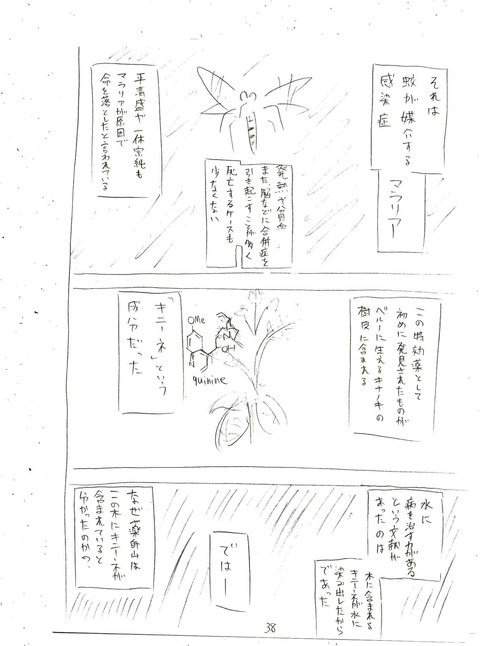 それは
蚊が媒介する
感染症
マラリアー
発熱や貧血
また、脳などに合併症を
引き起こすことが多く
死亡するケースも
少なくない
平清盛や一休宗純も
マラリアが原因で
命を落としたと言われている
この特効薬として
初めに発見されたものが
ペルーに生えるキナノキの
樹皮に含まれる
OMe
N
N
OH
quinine
「キニーネ」という
成分だった
水に
病を治す力がある
という文献が
あったのは
木に含まれる
キニーネが水に
染み出したから
であった
では—
なぜ薬師山は
この木にキニーネが
含まれていると
分かったのか。
38